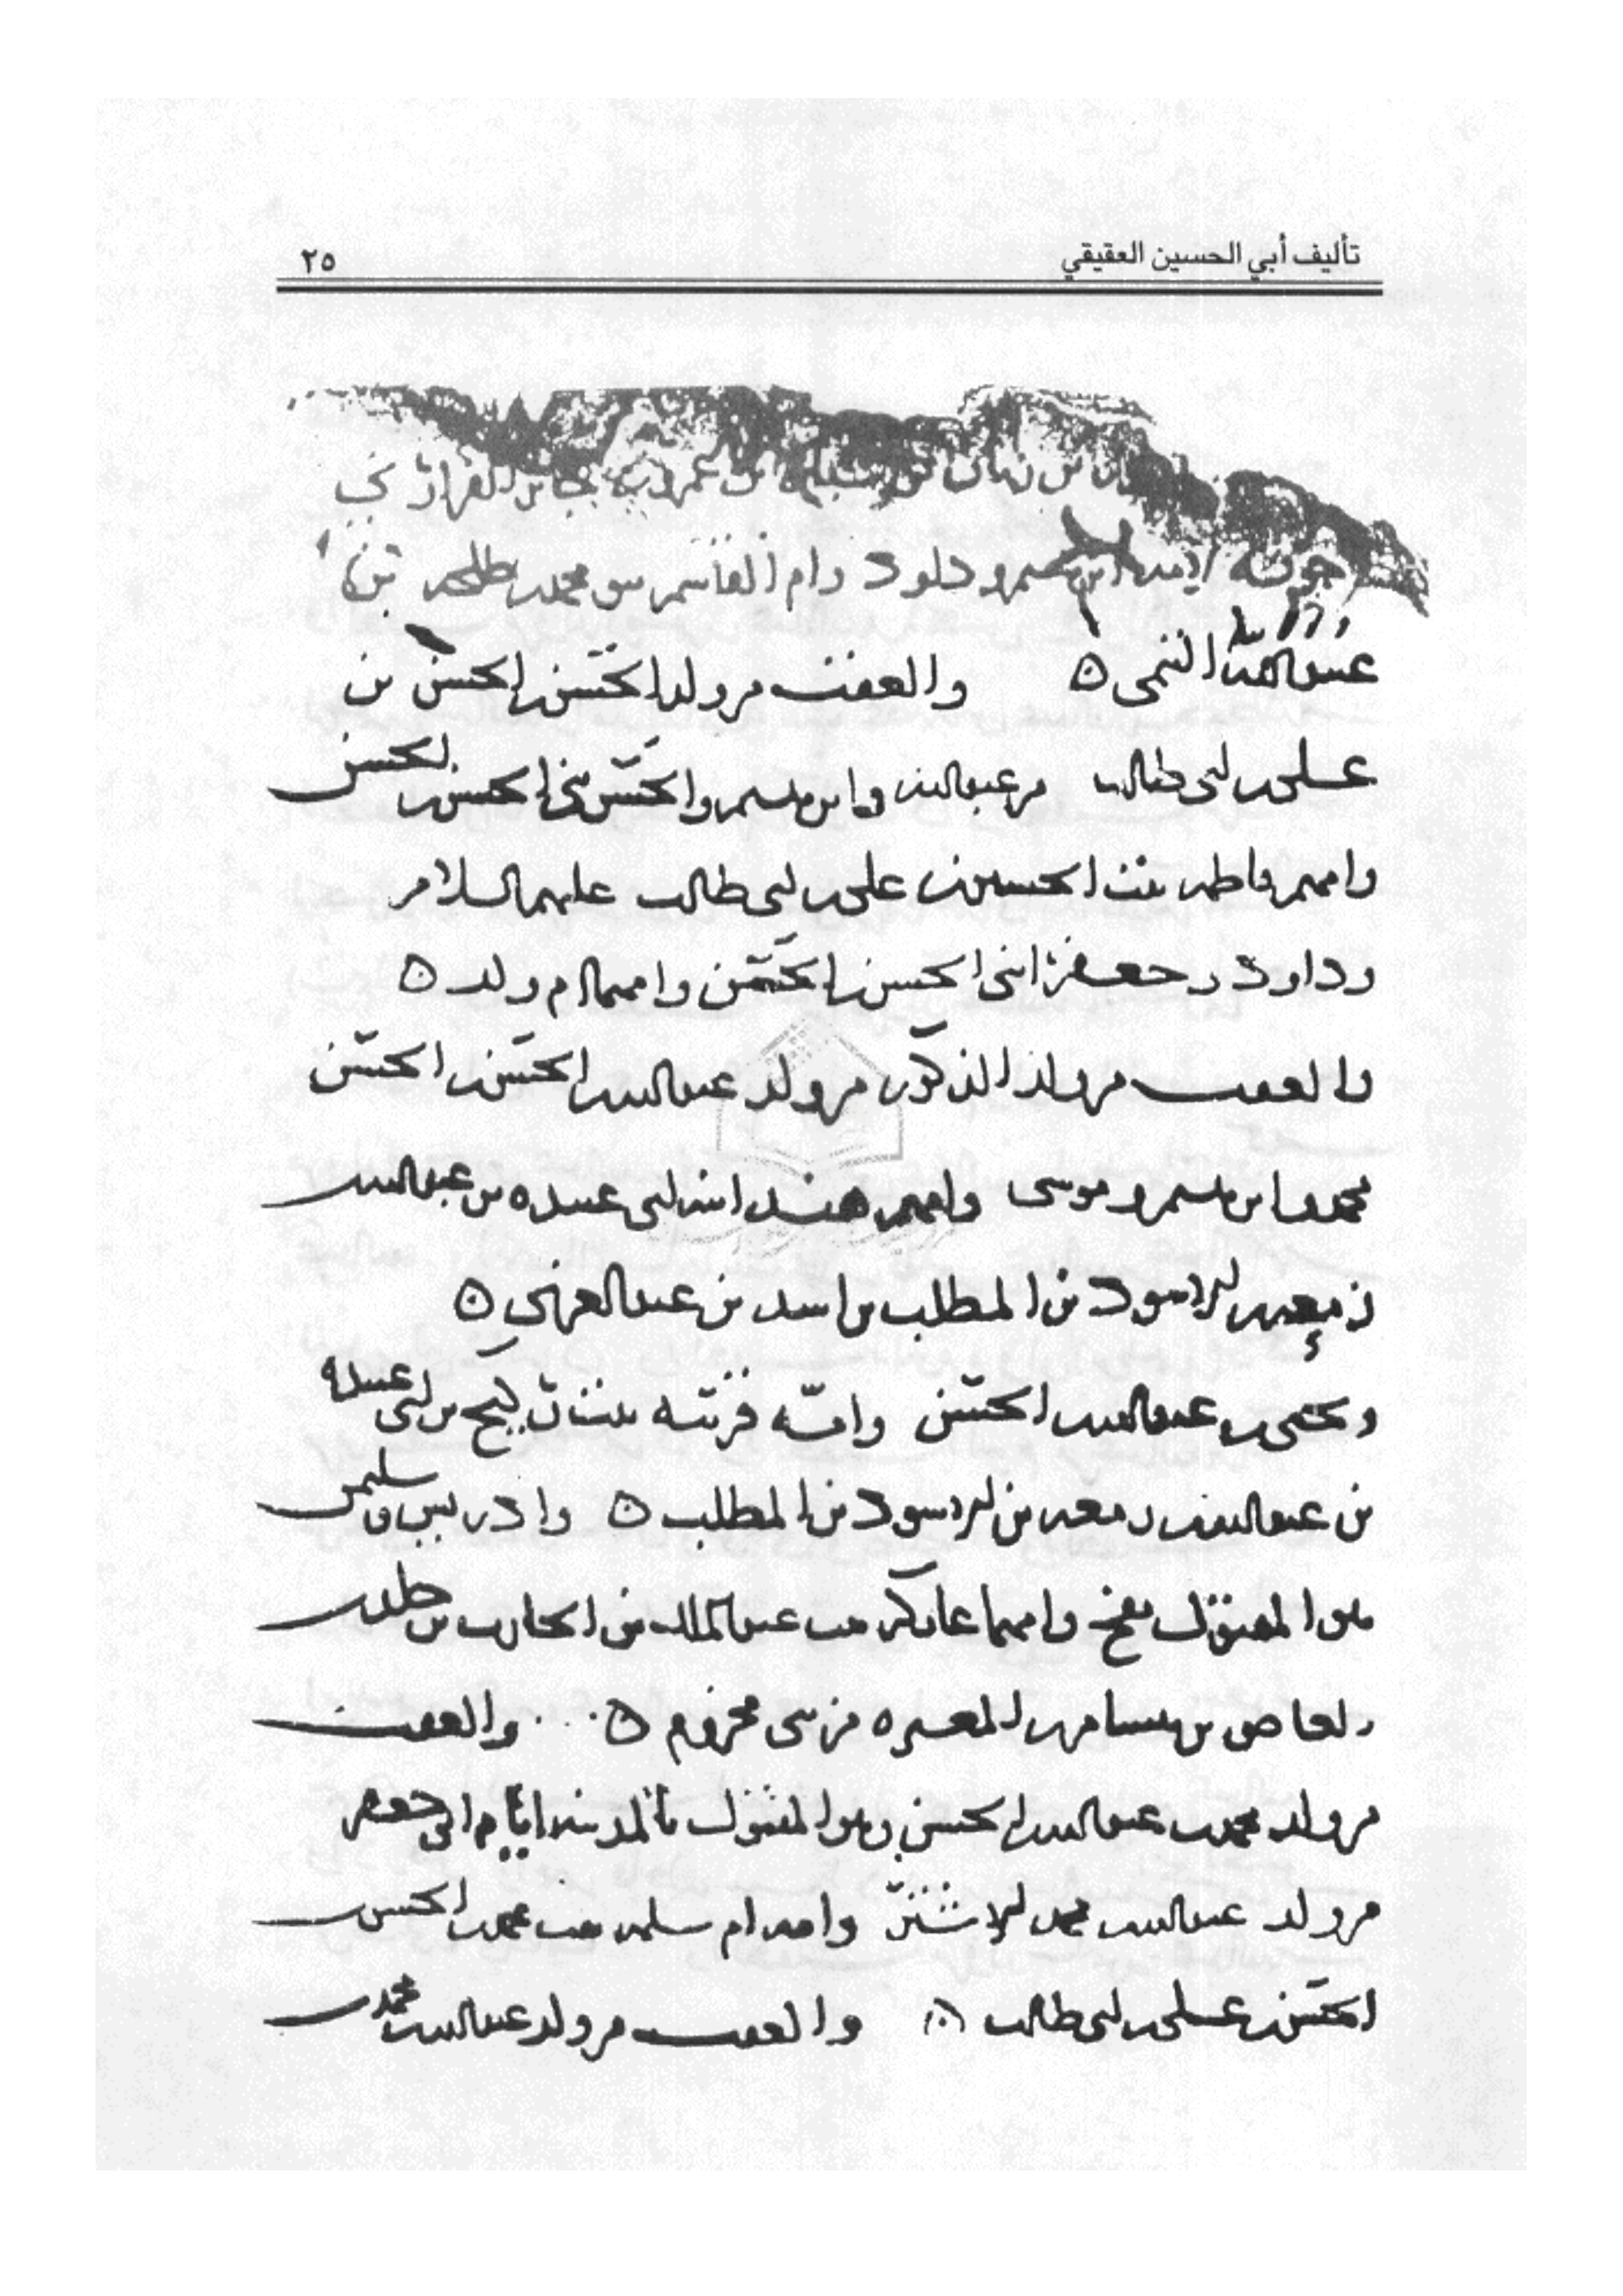 تأليف أبي الحسين العقيقي ٢٥
بن زبان بن عمرو بن جابر الفزاري
لامه ابرهيم وداود وام القاسم بنو محمد بن طلحه بن
عبيد الله التيمى ٥ والعقب من ولد الحسن بن الحسن بن
على بن ابى طالب من عبد الله وابرهيم والحسن بنى الحسن بن الحسن
وامهم فاطمه بنت الحسين بن على بن ابى طالب عليهم السلام
وداود وجعفر ابنى الحسن بن الحسن وامهما ام ولد ٥
والعقب من ولد الذكور من ولد عبد الله بن الحسن بن الحسن
محمد وابرهيم وموسى وامهم هند ابنه ابى عبيده بن عبد الله بن
زمعه بن الاسود بن المطلب بن اسد بن عبد العزى ٥
ويحيى بن عبد الله بن الحسن وامه قريبه بنت ركيح بن ابى عبيده
بن عبد الله بن زمعه بن الاسود بن المطلب ٥ وادريس وسليمن
هو المقتول بفخ وامهما عاتكه بنت عبد الملك بن الحارث بن خلد بن
العاص بن هشام بن المغيره من بنى مخزوم ٥ والعقب
من ولد محمد بن عبد الله بن الحسن وهو المقتول بالمدينه ايام ابى جعفر
من ولد عبد الله بن محمد الاشتر وامه ام سلمه بنت محمد بن الحسن بن
الحسن بن على بن ابى طالب ٥ والعقب من ولد عبد الله بن محمد بن